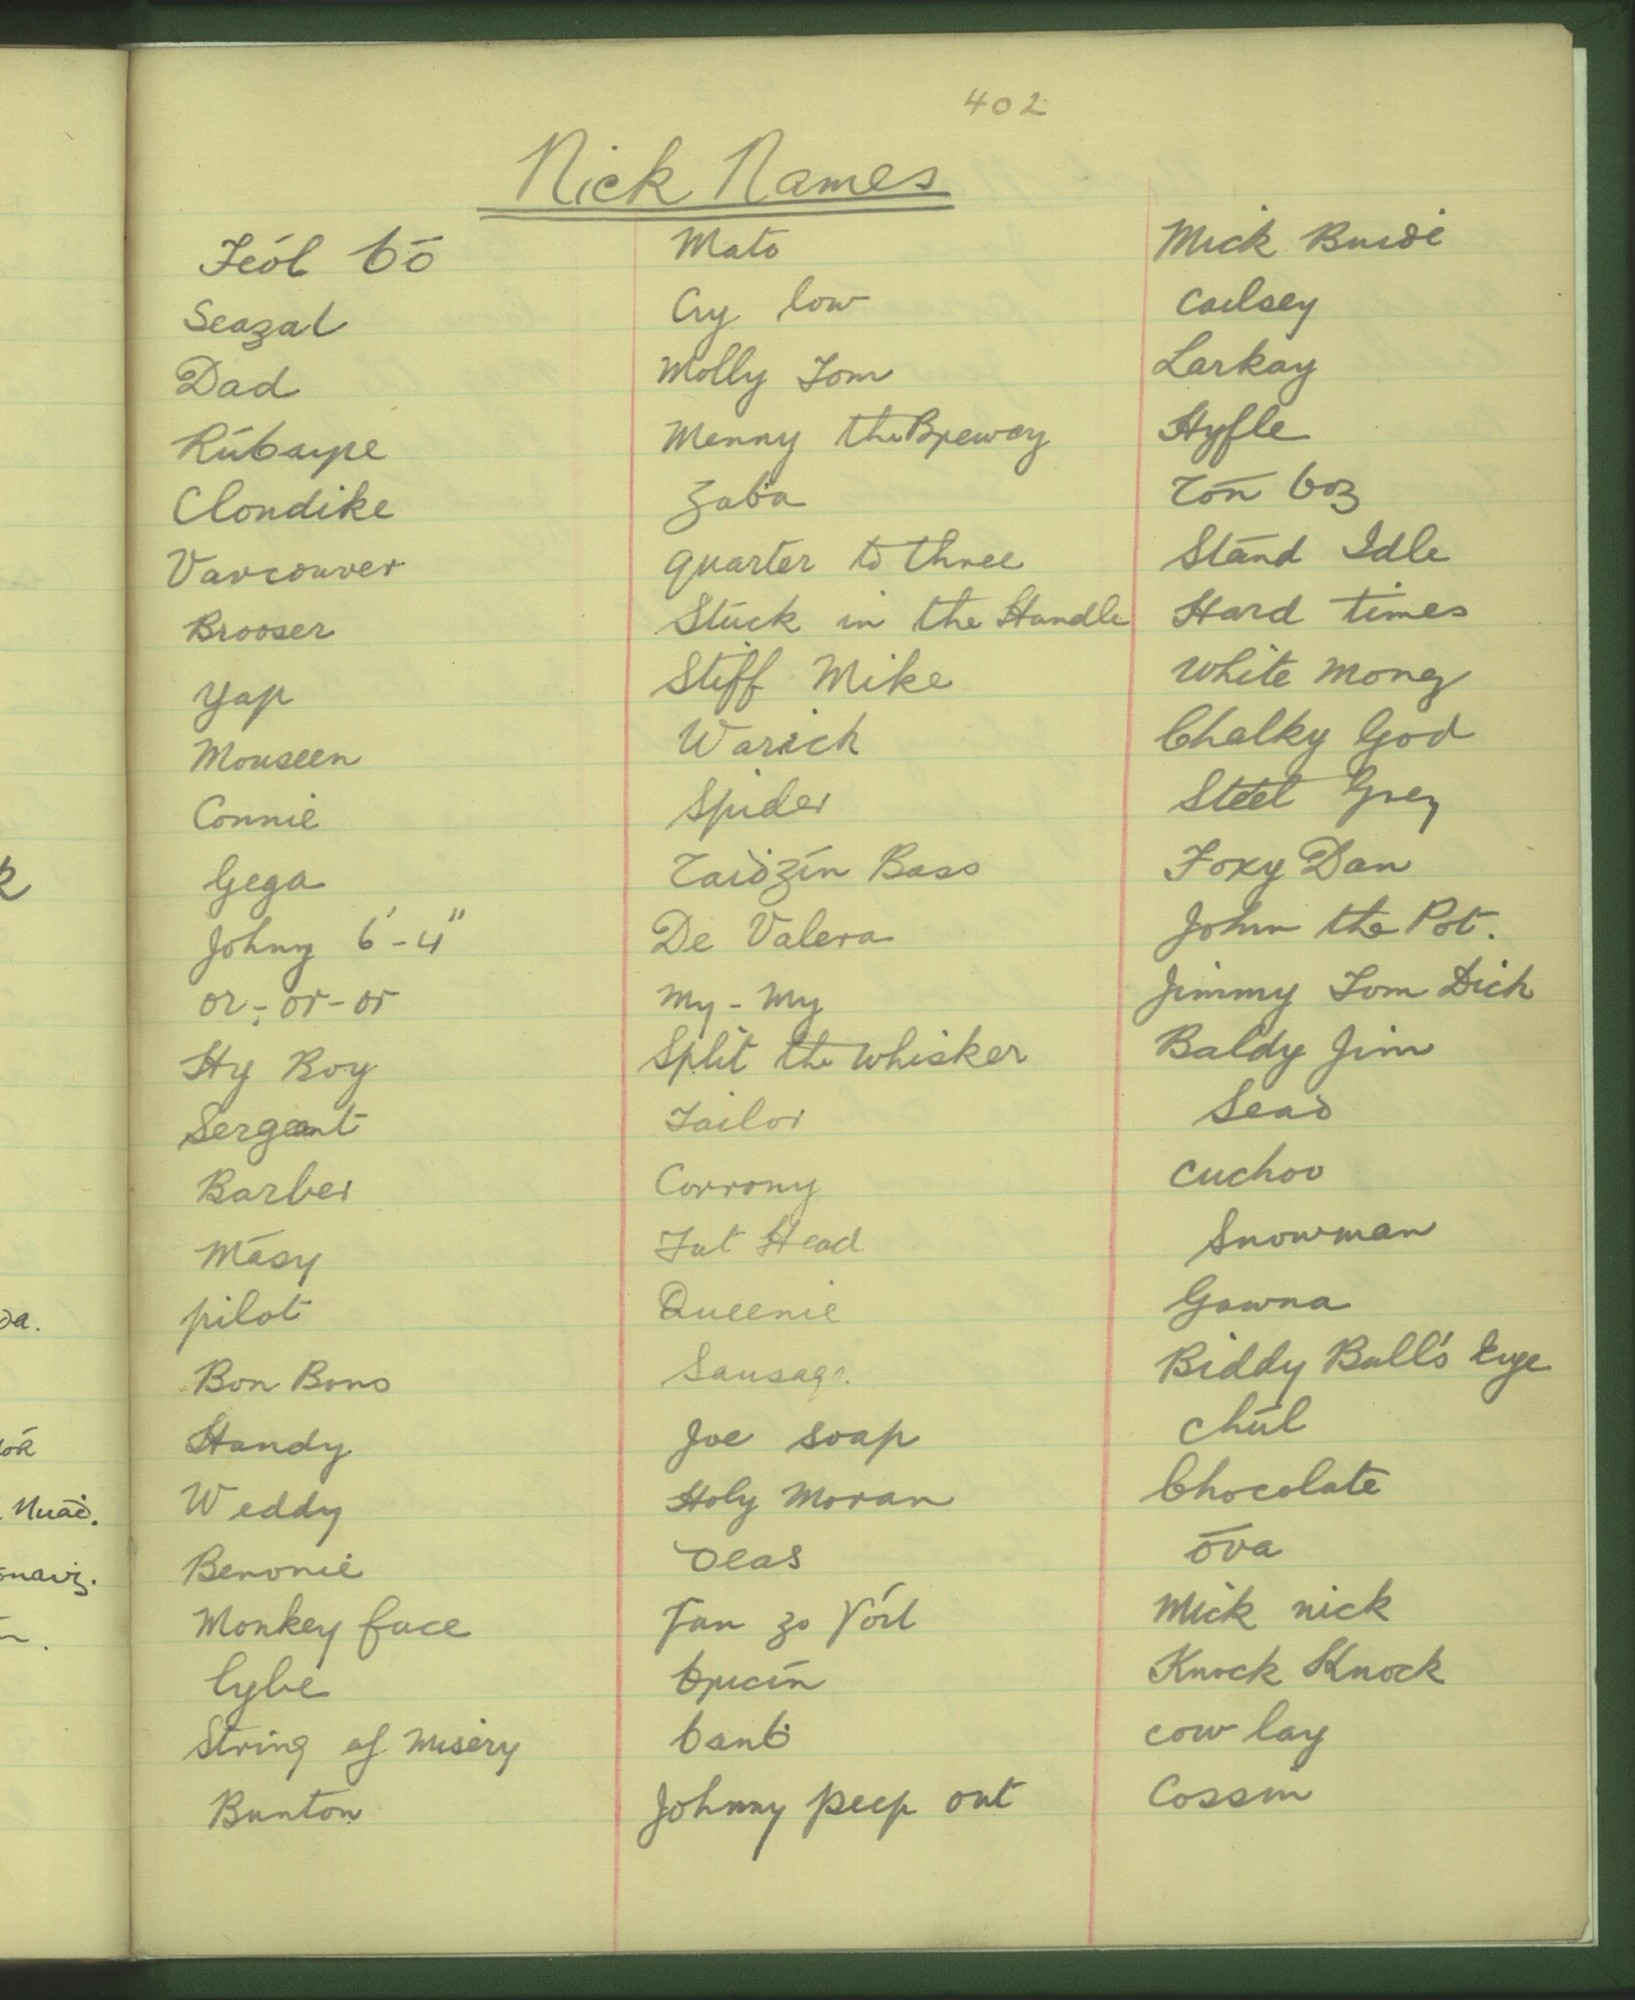 402
Nick Names
Feól bó
Seagal
Dad
Rúbaipe
Clondike
Varcouver
Brooser
Yap
Mouseen
Connie
Gega
Johny 6'-4"
or-or-or
Hy Boy
Sergeant
Barber
Másy
pilot
Bon Bons
Handy
Weddy
Benonie
Monkey face
Cybe
String of misery
Bunton
Mato
Cry low
Molly Tom
Menny the Brewery
Gaba
quarter to three
Stuck in the Handle
Stiff Mike
Warick
Spider
Taiḋgín Bass
De Valera
My-My
Split the whisker
Tailor
Corrony
Fat Head
Queenie
Sausage
Joe soap
Holy Moran
Deas
Fan go Fóil
bricín
banb
Johnny peep out
Mick Buiḋe
Caılsey
Larkay
Hyfle
Tón bog
Stand Idle
Hard times
White Mong
Chalky God
Steel Grey
Foxy Dan
John the Pot.
Jimmy Tom Dick
Baldy Jim
Seaḋ
Cuchoo
Snowman
Gawna
Biddy Bull's Eye
Chúl
Chocolate
óva
Mick nick
Knock Knock
cow lay
Cossin